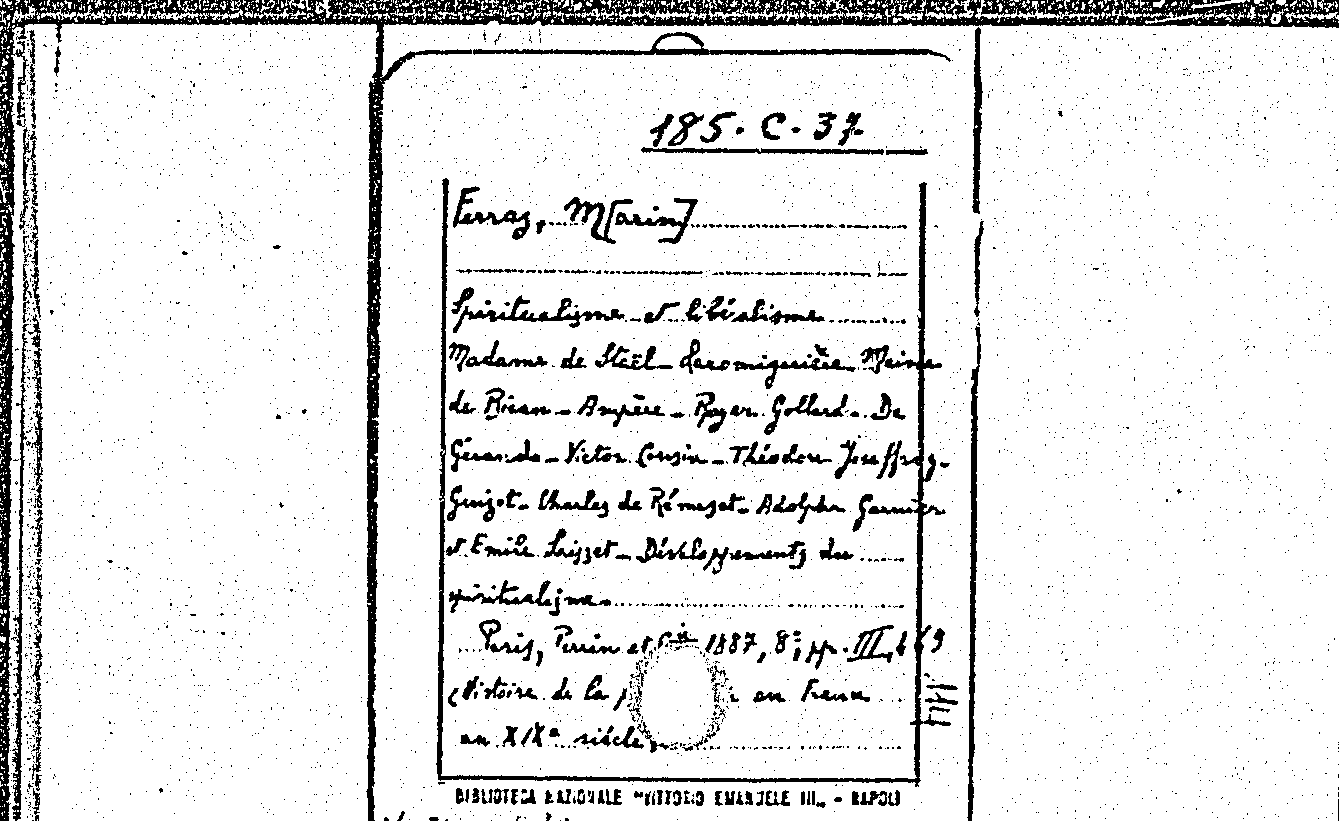 185. C. 37.
Ferraz, M[arin]
Spiritualisme et libéralisme
Madame de Staël - Laromiguière - Maine
de Biran - Ampère - Royer Collard - De
Gérando - Victor Cousin - Théodore Jouffroy -
Guizot - Charles de Rémusat - Adolphe Garnier
et Emile Saisset - Développements du
spiritualisme.
Paris, Perrin et C.ie 1887, 8°; pp. III, 469
(Histoire de la en France
au XIXe siècle)
BIBLIOTECA NAZIONALE "VITTORIO EMANUELE III„ - NAPOLI